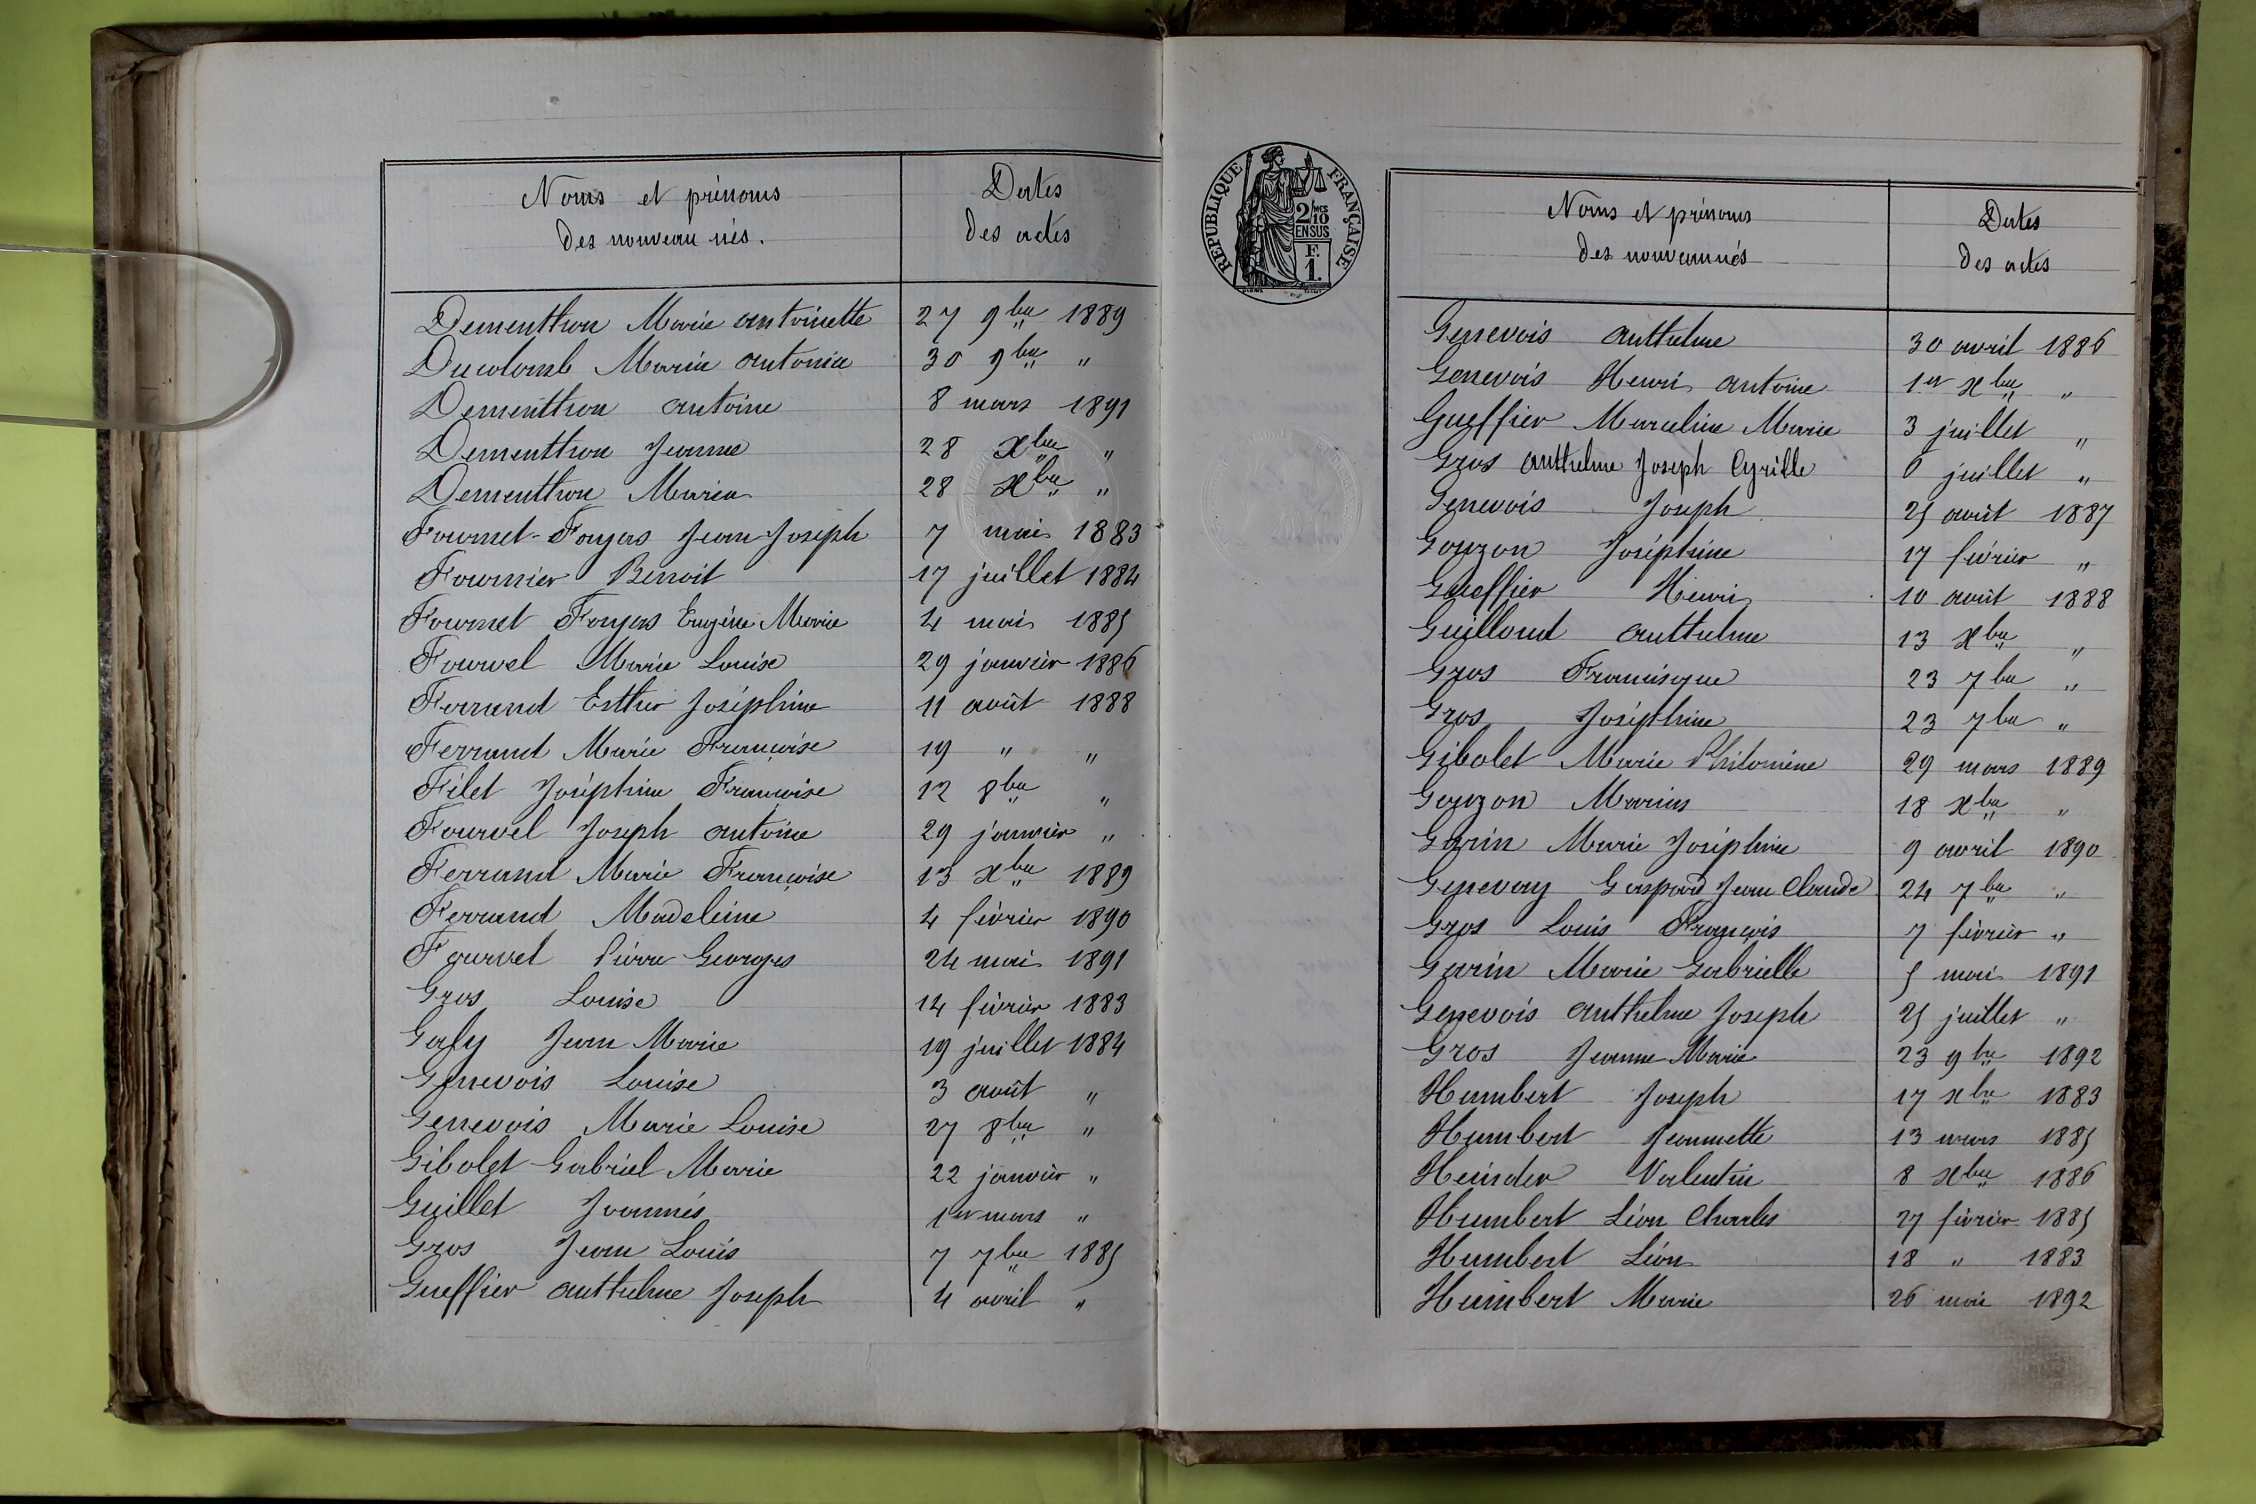 Noms et prénoms
des nouveau nés.
Dates
des actes
Dementhon Marie antoinette 27 9bre 1889
Ducolomb Marie antonia 30 9bre "
Dementhon antoine 8 mars 1891
Dementhon Jeanne 28 Xbre "
Dementhon Maria 28 Xbre "
Fournet-Fayas Jean Joseph 7 mai 1883
Fournier Benoit 17 juillet 1884
Fournet Fayas Eugène Marie 4 mai 1885
Fourvel Marie Louise 29 janvier 1886
Ferrand Esther Joséphine 11 août 1888
Ferrand Marie Françoise 19 " "
Filet Joséphine Françoise 12 8bre "
Fourvel Joseph antoine 29 janvier "
Ferrand Marie Françoise 13 Xbre 1889
Ferrand Madeleine 4 février 1890
Fourvel Pierre Georges 24 mai 1891
Gros Louise 14 février 1883
Galy Jean Marie 19 juillet 1884
Genevois Louise 3 août "
Genevois Marie Louise 27 8bre "
Gibolet Gabriel Marie 22 janvier "
Guillet Joannès 1er mars "
Gros Jean Louis 7 7bre 1885
Gueffier anthelme Joseph 4 avril "
RÉPUBLIQUE FRANÇAISE
2/10 MES
EN SUS
F.
1.
Noms et prénoms
des nouveau nés
Dates
des actes
Genevois anthelme 30 avril 1886
Genevois Henri antoine 1er Xbre "
Gueffier Marceline Marie 3 juillet "
Gros anthelme Joseph Cyrille 6 juillet "
Genevois Joseph 25 août 1887
Gouzon Joséphine 17 février "
Gueffier Henri 10 août 1888
Guilloud anthelme 13 Xbre "
Gros Francisque 23 7bre "
Gros Joséphine 23 7bre "
Gibolet Marie Philomène 29 mars 1889
Gouzon Marius 18 Xbre "
Garin Marie Joséphine 9 avril 1890
Genevay Gaspard Jean Claude 24 7bre "
Gros Louis François 7 février "
Garin Marie Gabrielle 5 mai 1891
Genevois anthelme Joseph 25 juillet "
Gros Jeanne Marie 23 9bre 1892
Humbert Joseph 17 Xbre 1883
Humbert Jeannette 13 mars 1885
Heinder Valentin 8 Xbre 1886
Humbert Léon Charles 27 février 1885
Humbert Léon 18 " 1883
Humbert Marie 26 mai 1892